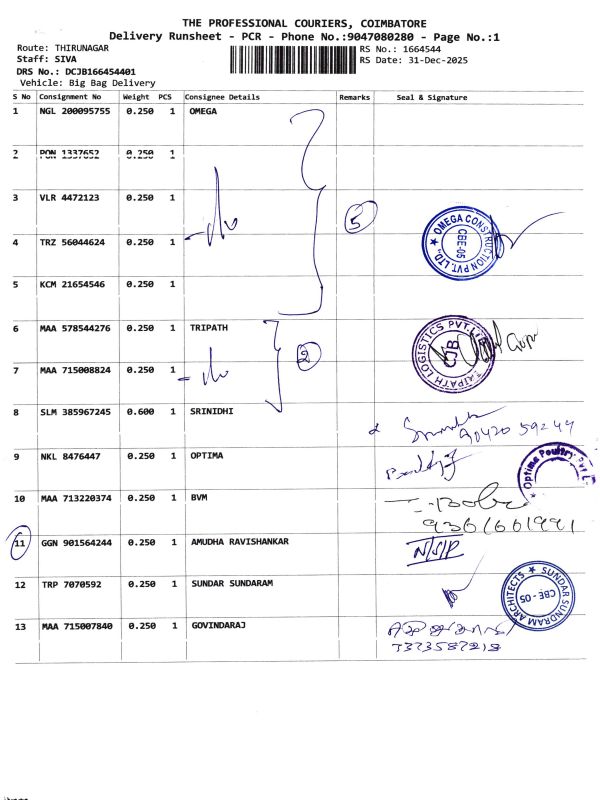 THE PROFESSIONAL COURIERS, COIMBATORE
Delivery Runsheet - PCR - Phone No.:9047080280 - Page No.:1
Route: THIRUNAGAR
RS No.: 1664544
Staff: SIVA
RS Date: 31-Dec-2025
DRS No.: DCJB166454401
Vehicle: Big Bag Delivery
S No Consignment No Weight PCS Consignee Details Remarks Seal & Signature
1 NGL 200095755 0.250 1 OMEGA
2 PON 1337652 0.250 1
3 VLR 4472123 0.250 1
5
OMEGA CONSTRUCTION PVT. LTD., CBE-05
4 TRZ 56044624 0.250 1
5 KCM 21654546 0.250 1
6 MAA 578544276 0.250 1 TRIPATH
2
LOGISTICS PVT.LTD
7 MAA 715008824 0.250 1
8 SLM 385967245 0.600 1 SRINIDHI
90420 59244
9 NKL 8476447 0.250 1 OPTIMA
Optima Poultry Pvt L
10 MAA 713220374 0.250 1 BVM
9361661991
11 GGN 901564244 0.250 1 AMUDHA RAVISHANKAR
N/S/P
12 TRP 7070592 0.250 1 SUNDAR SUNDARAM
SUNDAR SUNDRAM ARCHITECTS CBE - 05
13 MAA 715007840 0.250 1 GOVINDARAJ